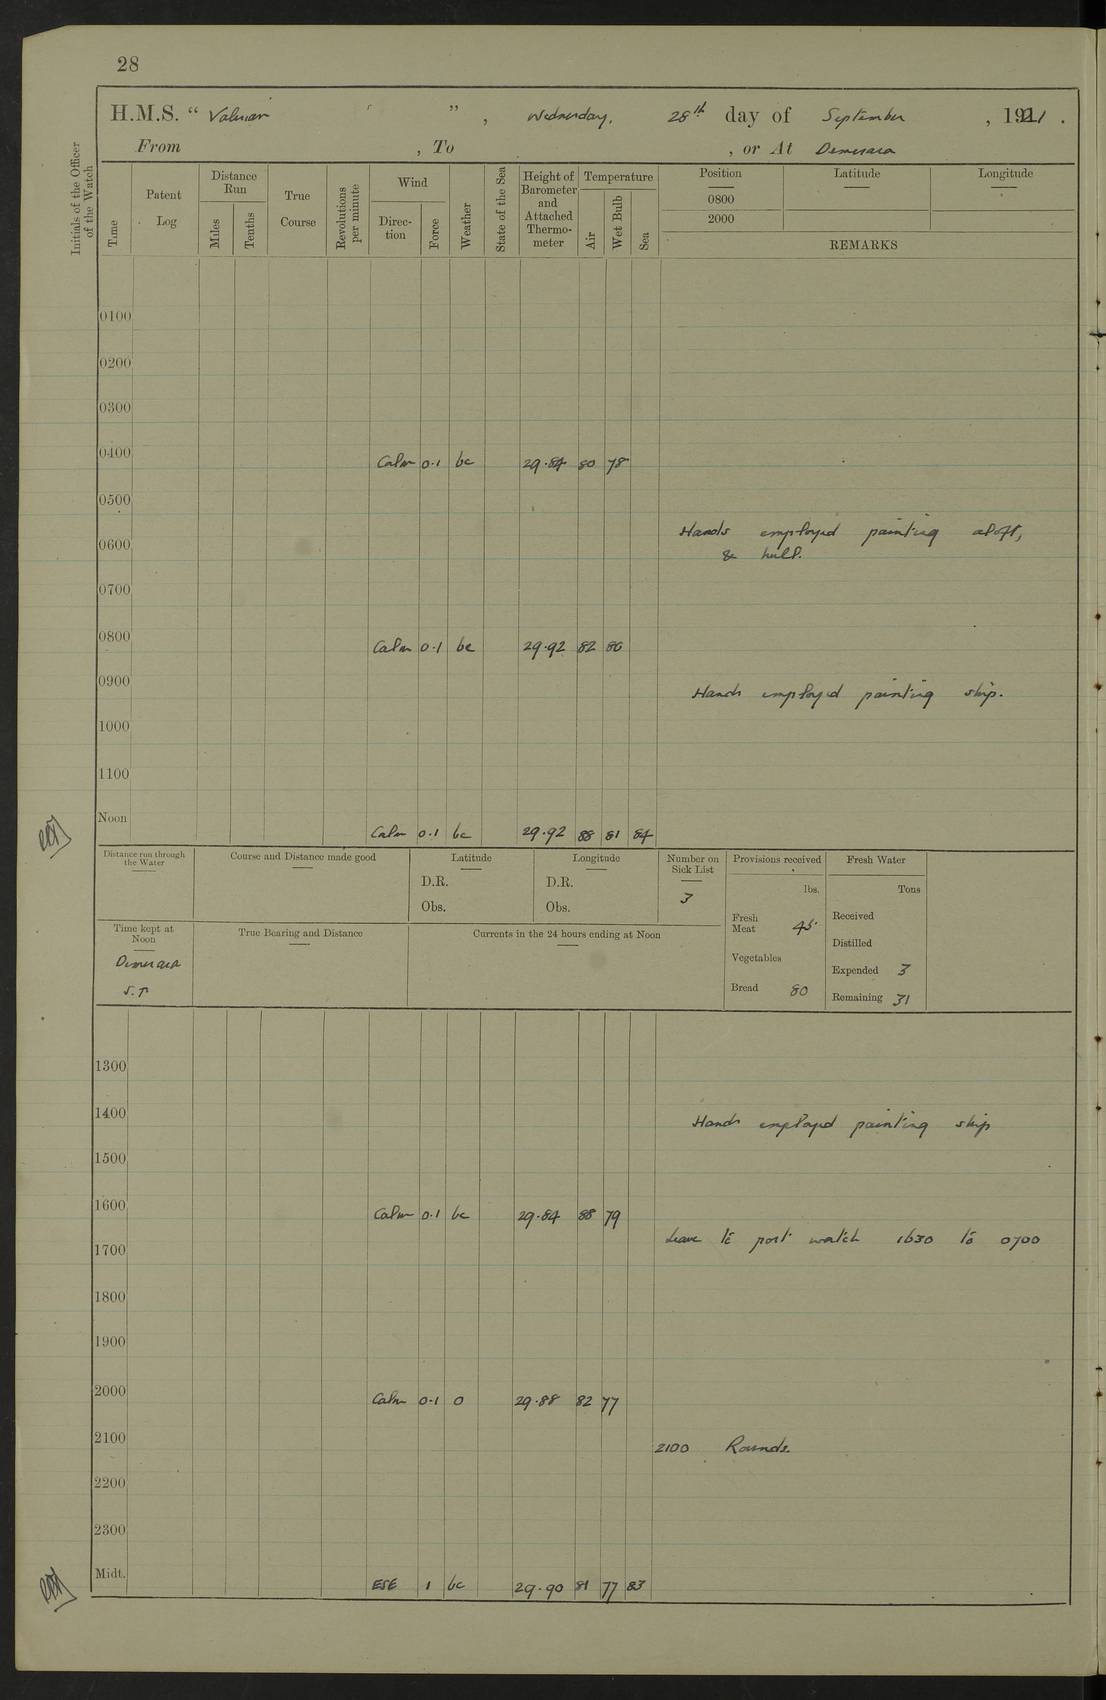 28
H.M.S. “ Valerian ” , Wednesday, 28th day of September , 1921 .
From , To , or At Demerara
Initials of the Officer of the Watch
Time
Patent Log
Distance Run
Miles
Tenths
True Course
Revolutions per minute
Wind
Direction
Force
Weather
State of the Sea
Height of Barometer and Attached Thermo-meter
Temperature
Air
Wet Bulb
Sea
Position
0800
2000
Latitude
Longitude
REMARKS
0100
0200
0300
0400 Calm 0.1 bc 29.84 80 78
0500
Hands employed painting aloft,
0600 & hull.
0700
0800 Calm 0.1 bc 29.92 82 80
0900 Hands employed painting ship.
1000
1100
Noon Calm 0.1 bc 29.92 88 81 84
Distance run through the Water
Course and Distance made good
Latitude
D.R.
Obs.
Longitude
D.R.
Obs.
Number on Sick List
3
Provisions received
lbs.
Fresh Meat 45
Vegetables
Bread 80
Fresh Water
Tons
Received
Distilled
Expended 3
Remaining 31
Time kept at Noon
Demerara
S.T.
True Bearing and Distance
Currents in the 24 hours ending at Noon
1300
1400 Hands employed painting ship
1500
1600 Calm 0.1 bc 29.84 88 79
Leave to port watch 1630 to 0700
1700
1800
1900
2000 Calm 0.1 0 29.88 82 77
2100 2100 Rounds.
2200
2300
Midt. ESE 1 bc 29.90 81 77 83